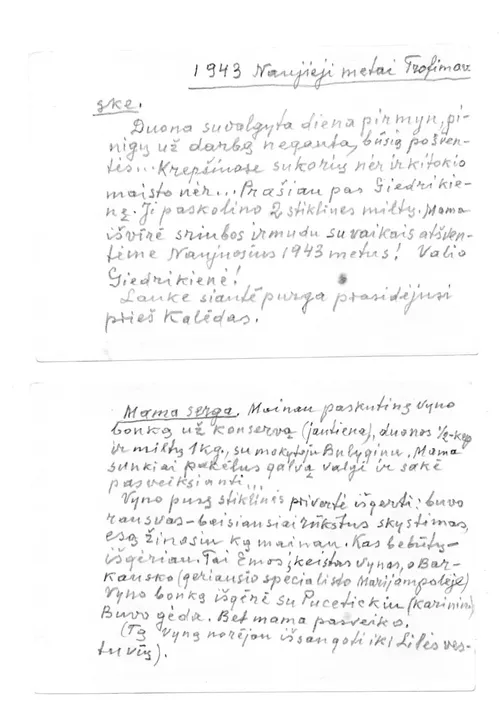 1943 Naujieji metai Trofimav
ske.
Duona suvalgyta diena pirmyn, pi-
nigų už darbą negauta, būsią pošven-
tės... Krepšinose sukorių nėr ir kitokio
maisto nėr... Prašiau pas Giedrikie-
nę. Ji paskolino 2 stiklines miltų. Mama
išvirė sriubos ir mudu su vaikais atšven-
tėme Naujuosius 1943 metus! Valio
Giedrikienė!
Lauke siautė purga prasidėjusi
prieš Kalėdas.
Mama serga. Mainau paskutinę vyno
bonką už konservą (jautiena), duonos 1/2 kep
ir miltų 1 kg., su mokytoju Bulyginu. Mama
sunkiai pakėlus galvą valgi ir sakė
pasveiksianti...
Vyno pusę stiklinės privertė išgerti: buvo
rausvas-baisiausiai rūkštus skystimas,
esą žinosiu ką mainau. Kas bebūtų-
išgėriau. Tai Emos įkeistas vynas, o Bar-
kausko (geriausio specialisto Marijampolėje)
vyno bonką išgėrė su Pucetickiu (karininku)
Buvo gėda. Bet mama pasveiko.
(Tą vyną norėjau išsaugoti iki Lilės ves-
tuvių).